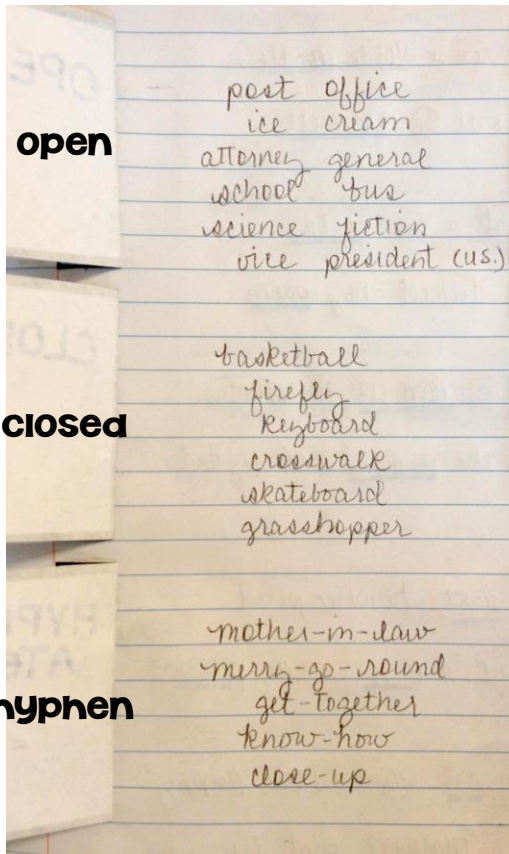 open
post office
ice cream
attorney general
school bus
science fiction
vice president (U.S.)
closed
basketball
firefly
keyboard
crosswalk
skateboard
grasshopper
hyphen
mother-in-law
merry-go-round
get-together
know-how
close-up